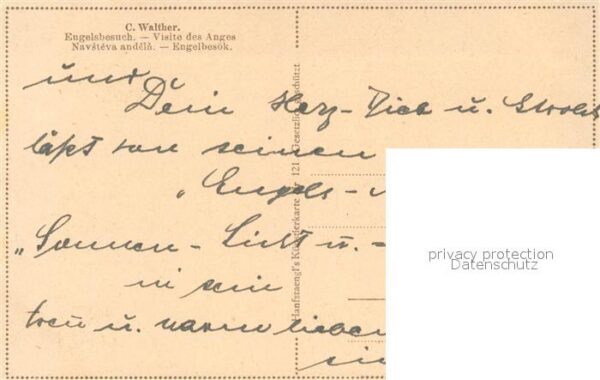 C. Walther.
Engelsbesuch. — Visite des Anges
Navštéva andělů. — Engelbesök.
und
Dein Herz-Dieb u.
läßt von seinen
"Engels-
"Sonnen-Licht u.-
in sein
treu u. warm lieben
Hanfstaengl's Künstlerkarte Nr. 121 Gesetzlich geschützt
privacy protection
Datenschutz